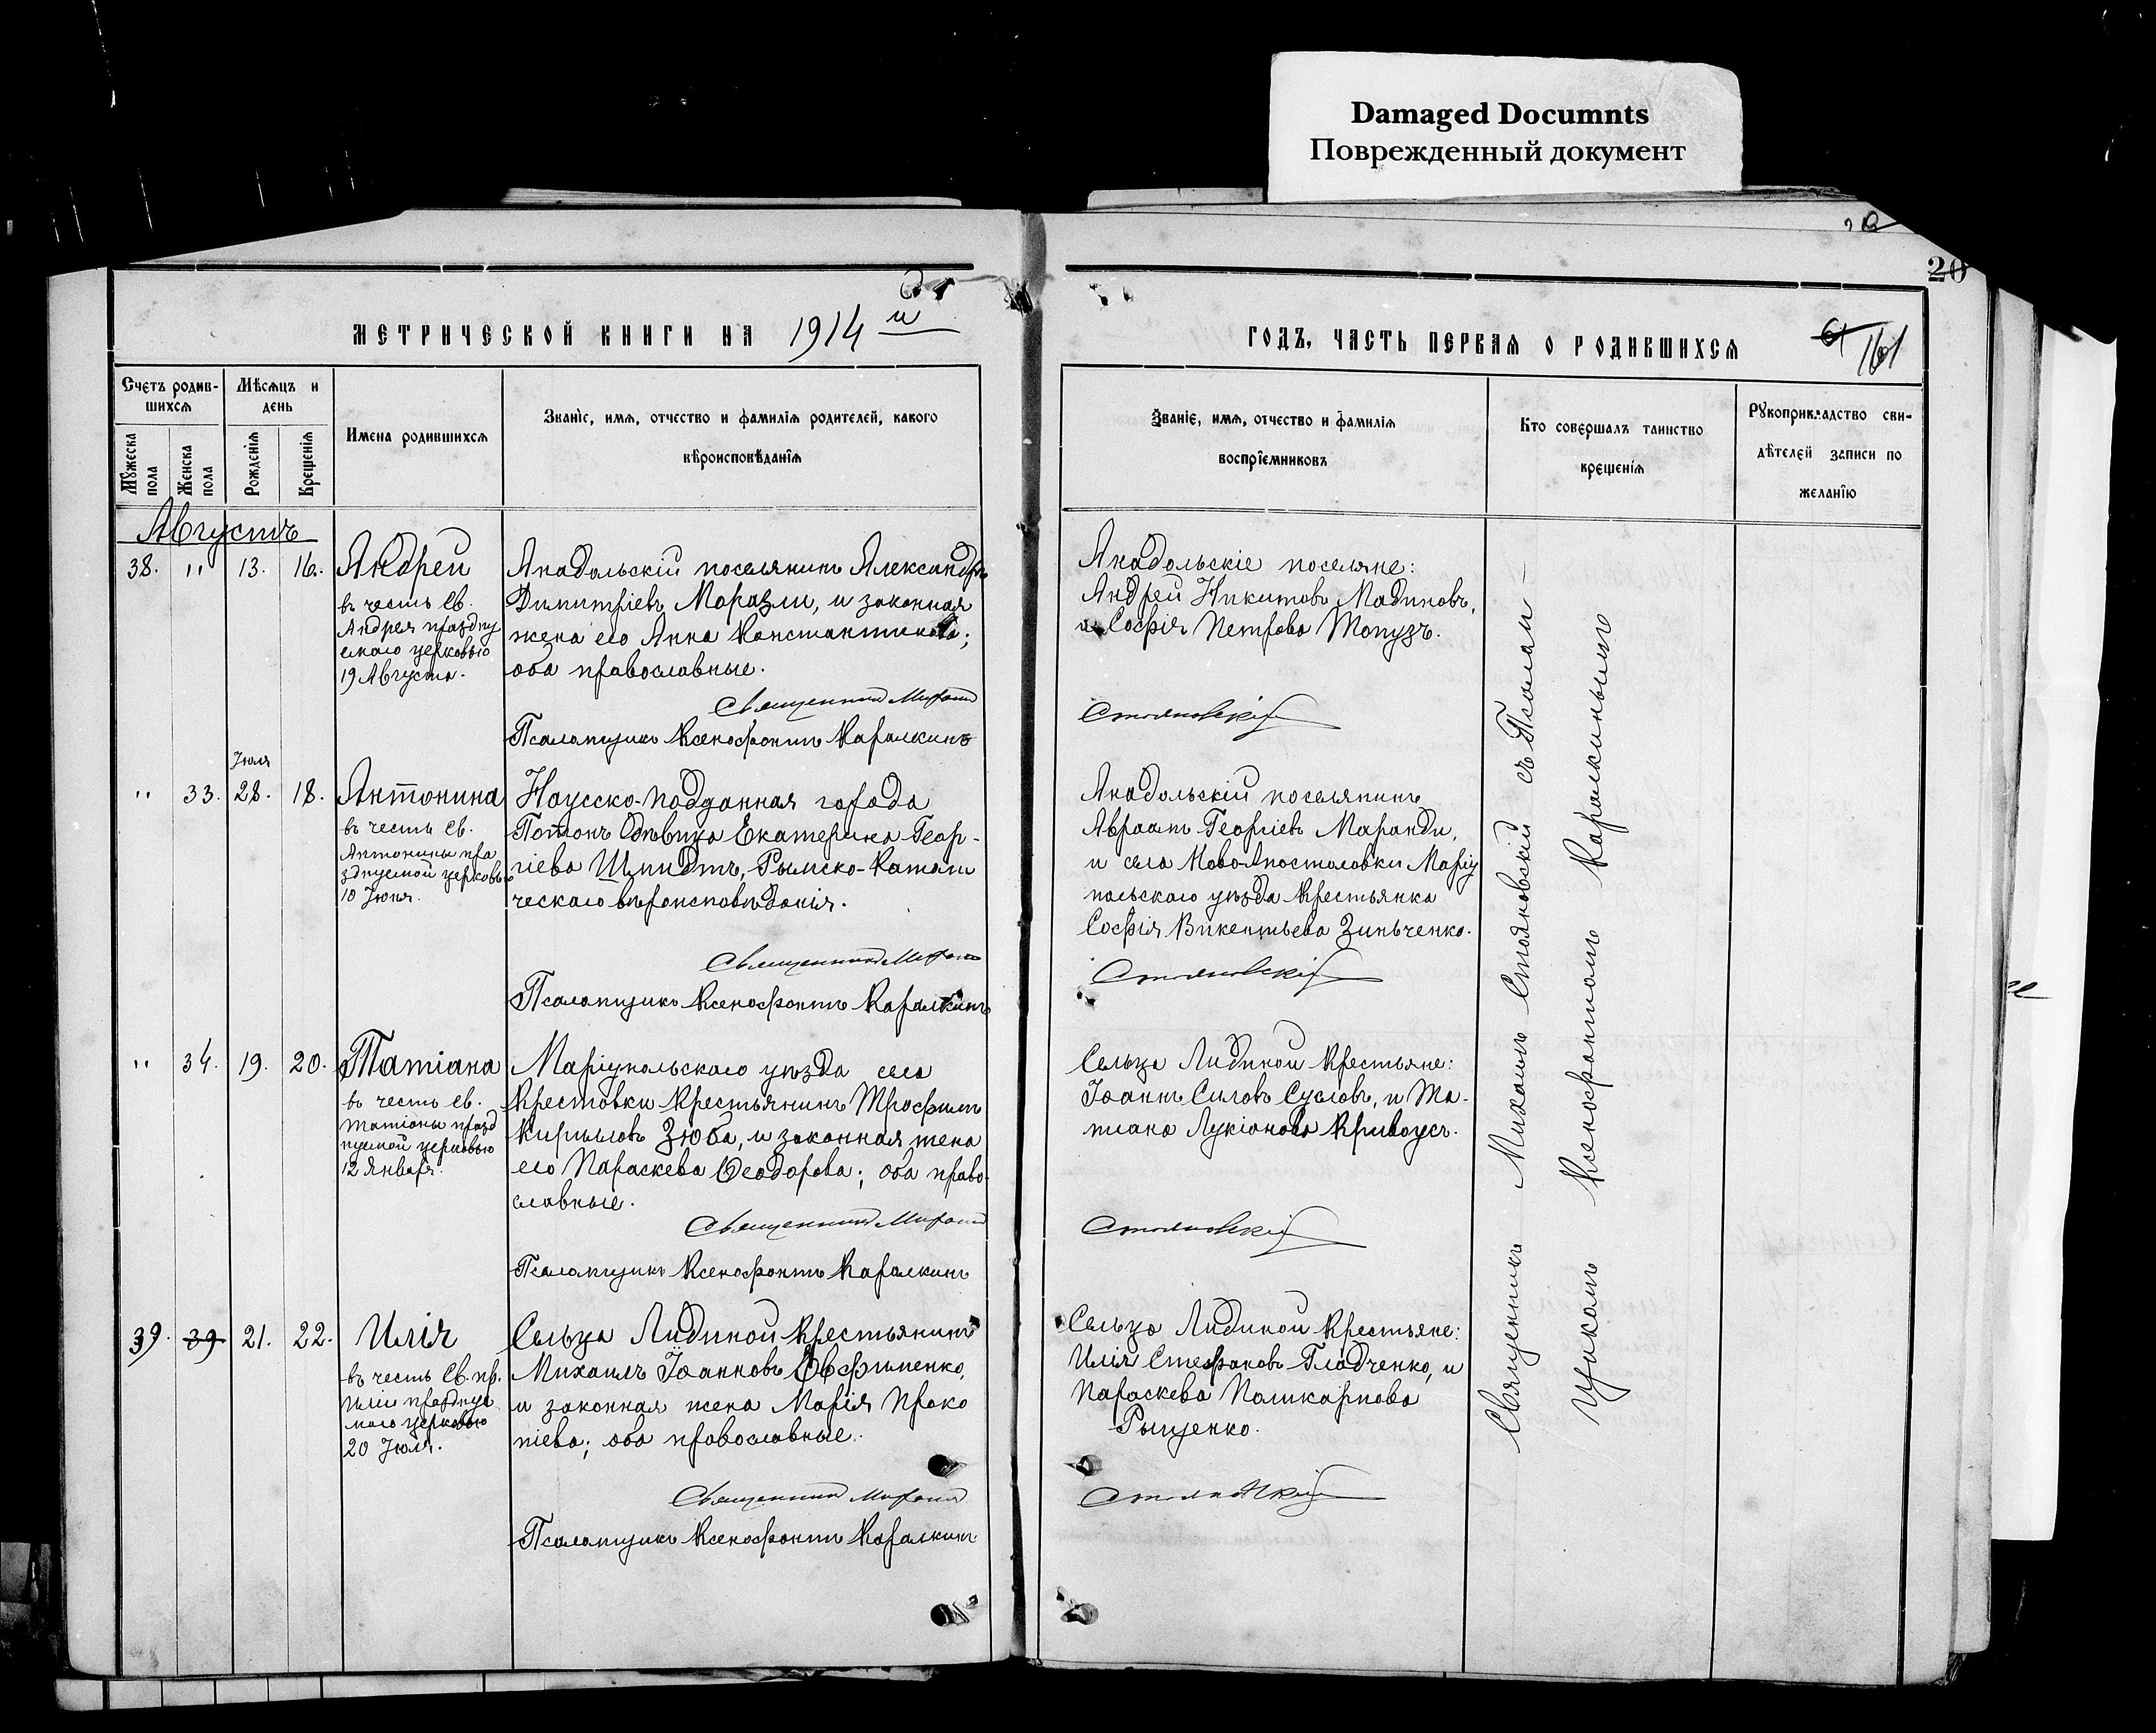 Damaged Documnts
Поврежденный документ
20
МЕТРИЧЕСКОЙ КНИГИ НА 1914 й
ГОДЪ, ЧАСТЬ ПЕРВАЯ О РОДИВШИХСЯ
61 161
Счетъ родив-
шихся
Мѣсяцъ и
день
Мужеска
пола
Женска
пола
Рожденія
Крещенія
Имена родившихся
Званіе, имя, отчество и фамилія родителей, какого
вѣроисповѣданія
Званіе, имя, отчество и фамилія
воспріемниковъ
Кто совершалъ таинство
крещенія
Рукоприкладство сви-
дѣтелей записи по
желанію
Августъ
38. " 13. 16.
Андрей
въ честь св.
Андрея праздну
емаго церковью
19 Августа.
Анадольскій поселянинъ Александръ
Димитріевъ Моразли, и законная
жена его Анна Константинова;
оба православные.
Священникъ Михаилъ
Псаломщикъ Ксенофонтъ Каралкинъ
Анадольскіе поселяне:
Андрей Никитовъ Мадиновъ,
и Софія Петрова Топузъ.
Стояновскій
Іюля
" 33. 28. 18.
Антонина
въ честь св.
Антонины пра
зднуемой церковью
10 Іюня.
Германско-подданная города
дѣвица Екатерина Геор-
гіева Шмидтъ, Римско-Католи
ческаго вѣроисповѣданія.
Священникъ Михаилъ
Псаломщикъ Ксенофонтъ Каралкинъ
Анадольскій поселянинъ
Авраамъ Георгіевъ Маранди,
и села Ново-Апостоловки Маріу
польскаго уѣзда крестьянка
Софія Викентьева Зинченко.
Стояновскій
" 34. 19. 20.
Татіана
въ честь св.
Татіаны празд
нуемой церковью
12 Января.
Маріупольскаго уѣзда села
Крестовки крестьянинъ Трофимъ
Кирилловъ Зюба, и законная жена
его Параскева Ѳеодорова; оба право-
славные.
Священникъ Михаилъ
Псаломщикъ Ксенофонтъ Каралкинъ
Сельца Лидиной крестьяне:
Іоаннъ Силовъ Сусловъ, и Та-
тіана Лукіанова Кривоусъ.
Стояновскій
39. 39 21. 22.
Илія
въ честь св. пр.
Иліи праздну
маго церковью
20 Іюля.
Сельца Лидиной крестьянинъ
Михаилъ Іоанновъ Евфименко,
и законная жена Марія Проко
піева; оба православные.
Священникъ Михаилъ
Псаломщикъ Ксенофонтъ Каралкинъ
Сельца Лидиной крестьяне:
Илія Стефановъ Гладченко, и
Параскева Поликарпова
Рыщенко.
Стояновскій
Священникъ Михаилъ Стояновскій съ Псалом-
щикомъ Ксенофонтомъ Каралкинымъ